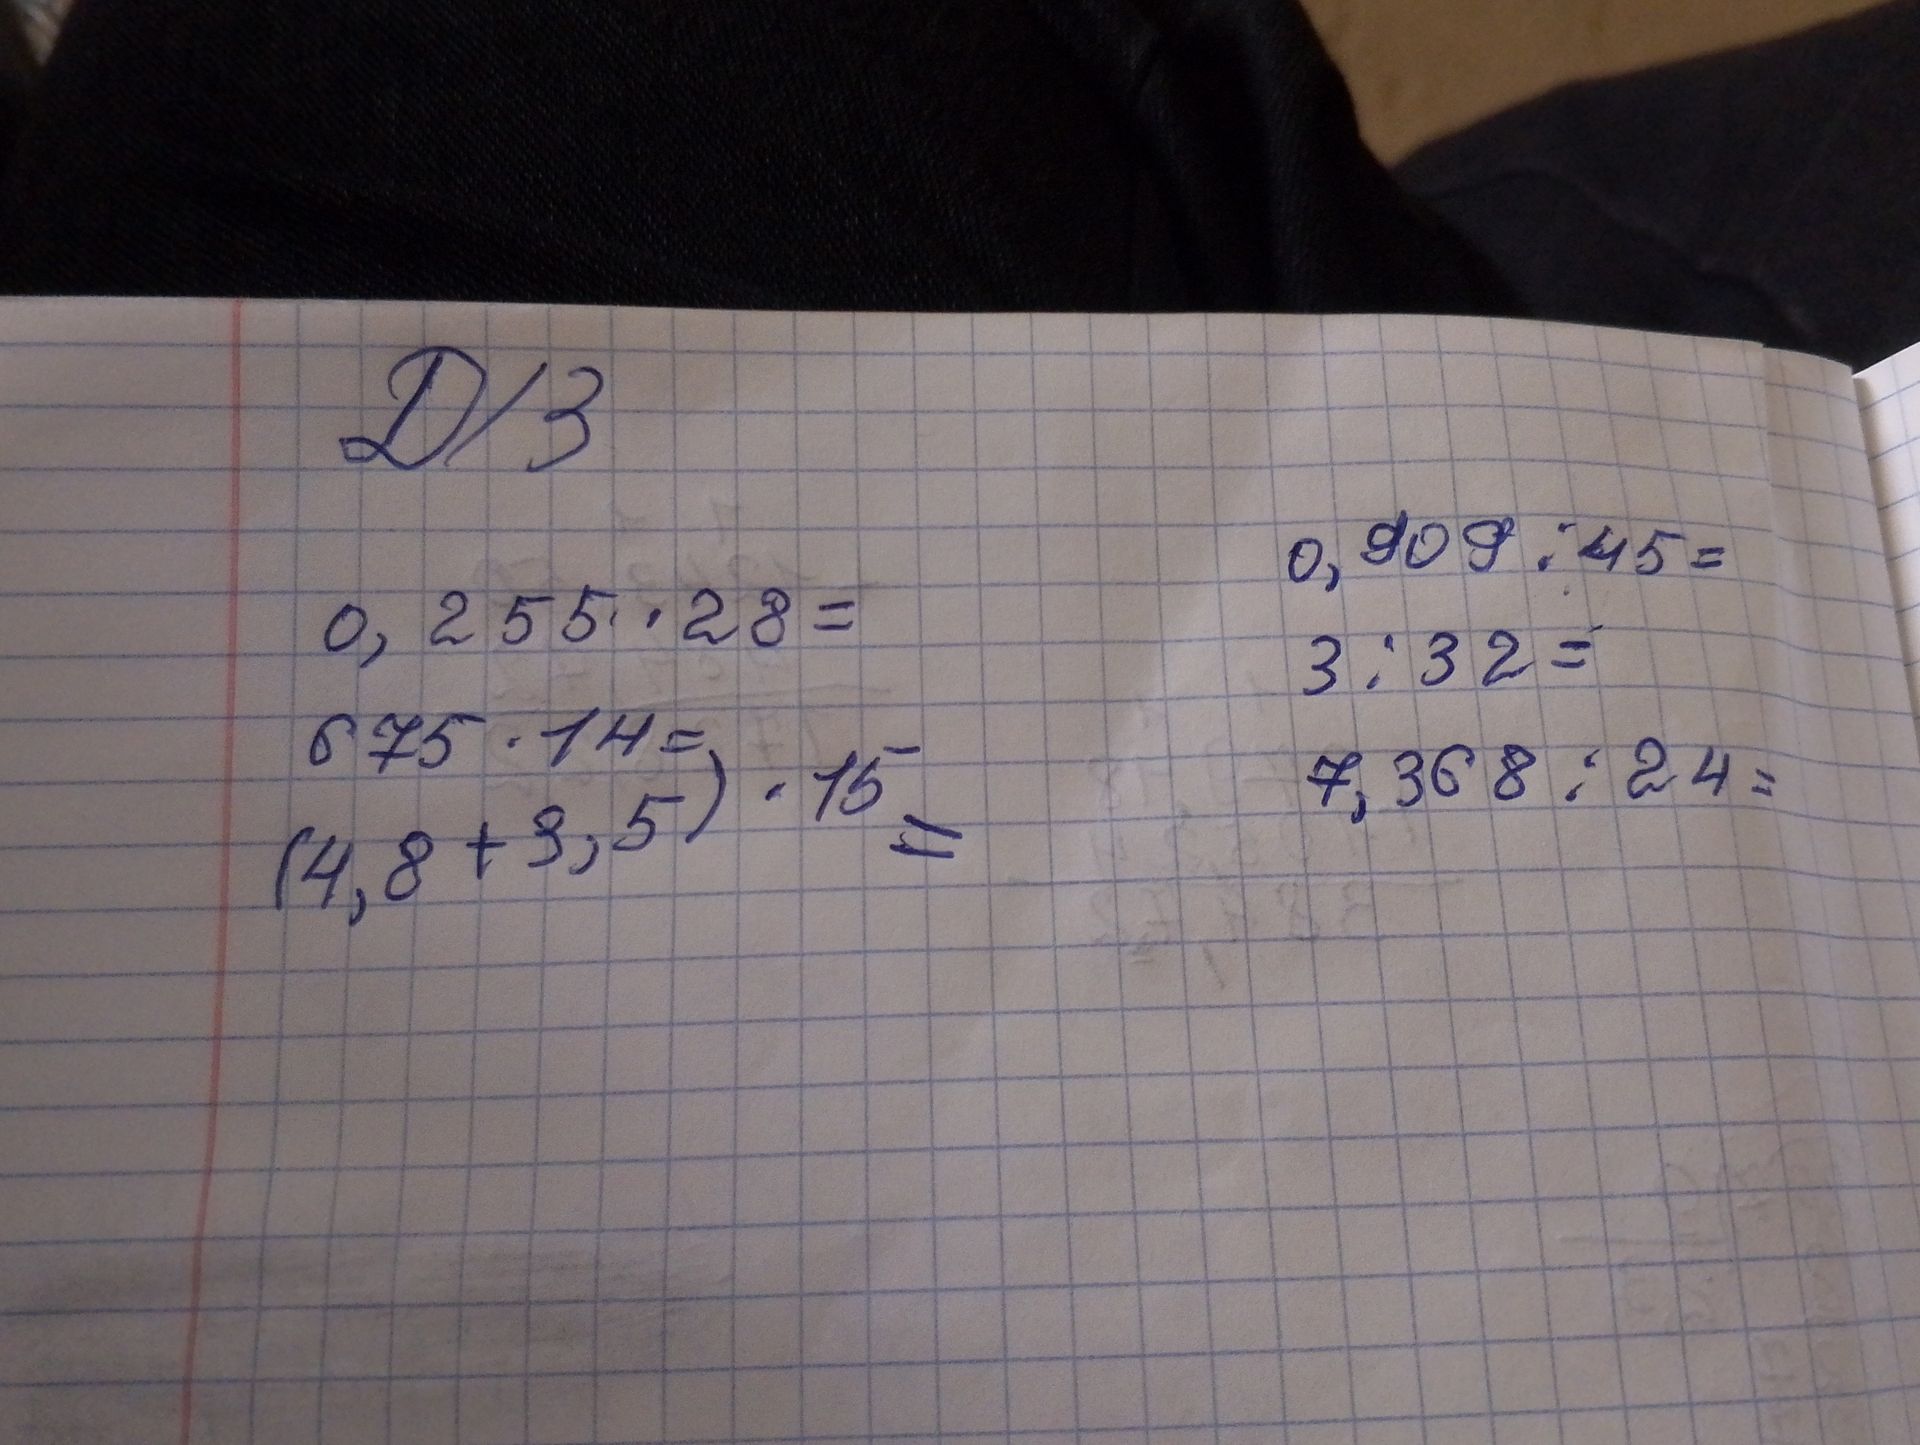 Д/З
0,255 · 28 =
675 · 14 =
(4,8 + 3,5) · 15 =
0,909 : 45 =
3 : 32 =
7,368 : 24 =